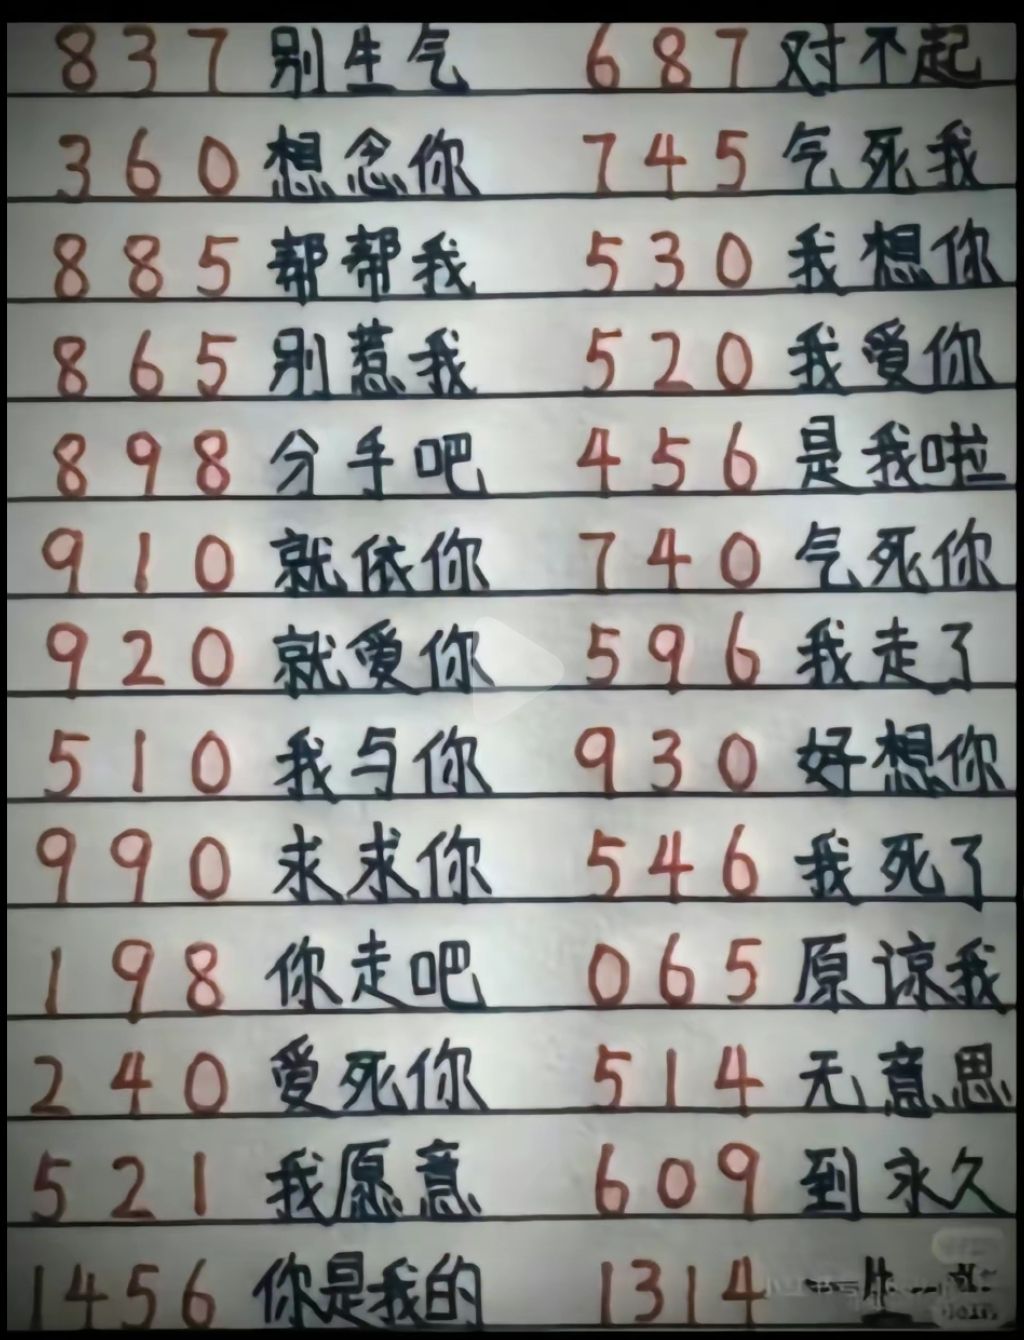 837 别生气 687 对不起
360 想念你 745 气死我
885 帮帮我 530 我想你
865 别惹我 520 我爱你
898 分手吧 456 是我啦
910 就依你 740 气死你
920 就爱你 596 我走了
510 我与你 930 好想你
990 求求你 546 我死了
198 你走吧 065 原谅我
240 爱死你 514 无意思
521 我愿意 609 到永久
1456 你是我的 1314 一生一